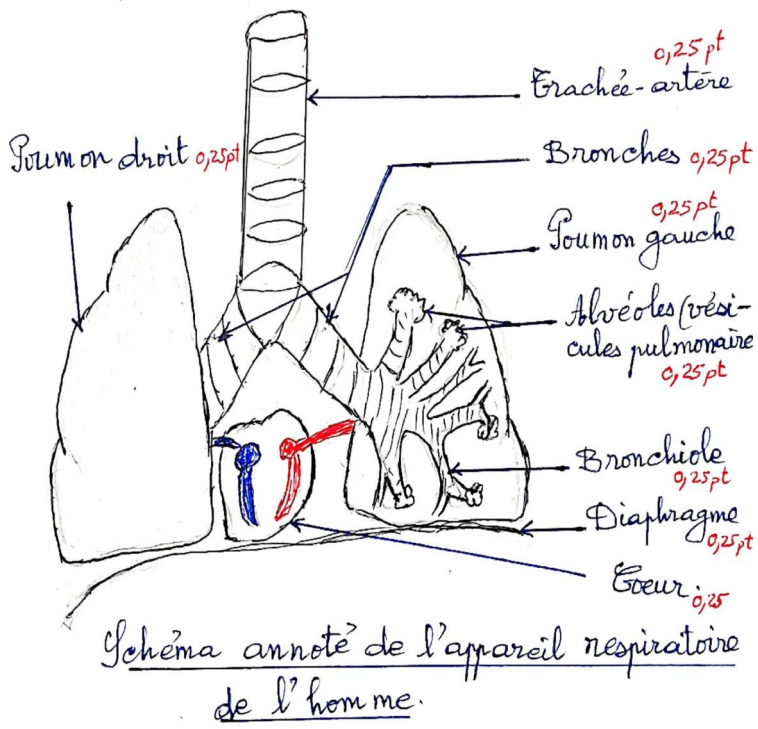 0,25pt
Trachée-artère
Poumon droit 0,25pt
Bronches 0,25pt
0,25pt
Poumon gauche
Alvéoles (vési-
cules pulmonaire
0,25pt
Bronchiole
0,25pt
Diaphragme
0,25pt
Coeur. 0,25
Schéma annoté de l'appareil respiratoire
de l'homme.